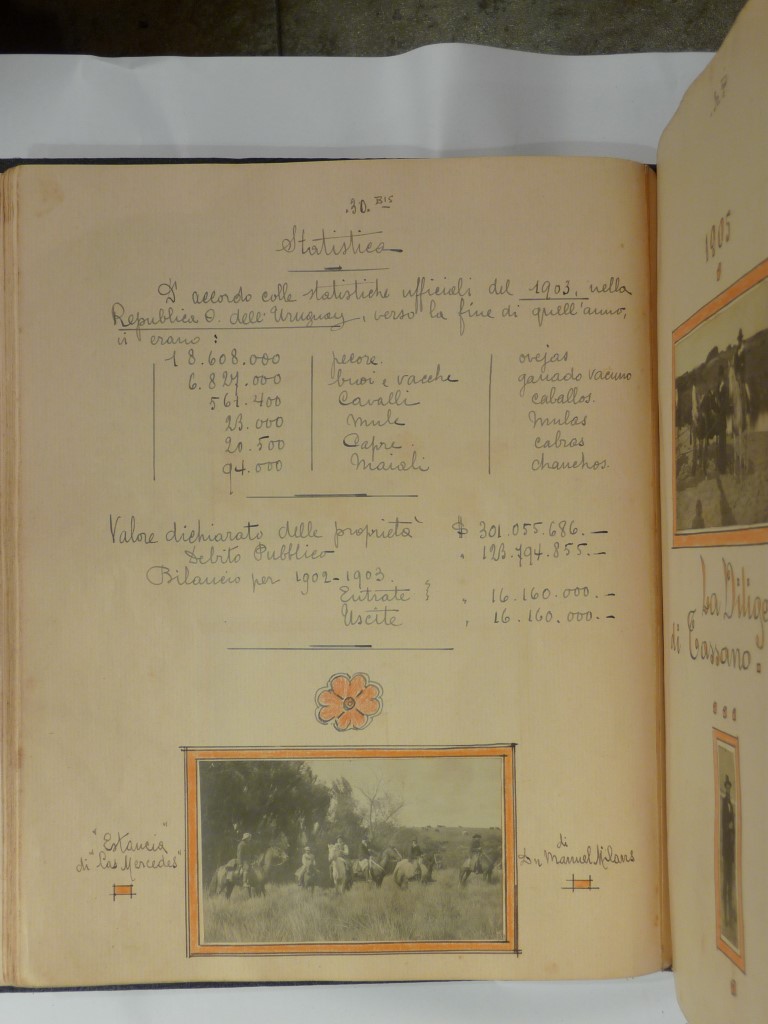 .30. BIS
Statistica
D'accordo colle statistiche ufficiali del 1903, nella
Republica O. dell'Uruguay, verso la fine di quell'anno,
vi erano :
18.608.000 pecore. ovejas
6.827.000 buoi e vacche ganado vacuno
561.400 Cavalli caballos.
23.000 Mule Mulas
20.500 Capre. cabras
94.000 Maiali chanchos.
Valore dichiarato delle proprietà $ 301.055.686.—
Debito Pubblico " 123.794.855.—
Bilancio per 1902-1903.
Entrate " 16.160.000.—
Uscite " 16.160.000.—
"Estancia"
di "Las Mercedes"
di
Dn Manuel Milans
1905
La Dilige
di Cassano.